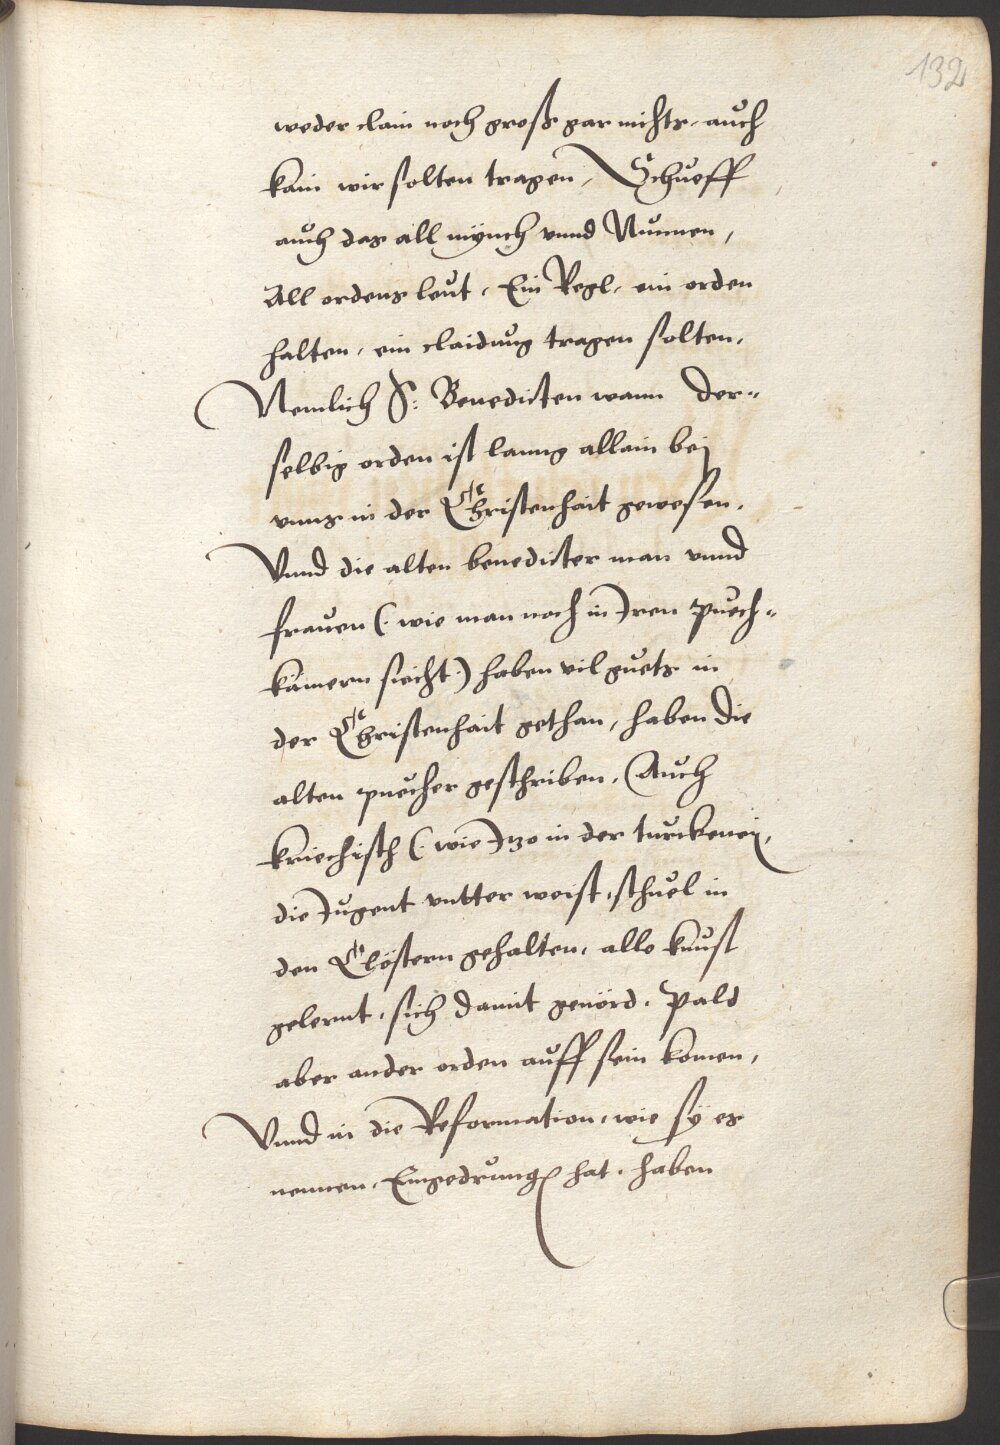 132
weder clain noch groß gar nichts, auch
kain wir solten tragen, Schueff
auch das all mÿnch vnnd Nunnen,
All ordens leut, Ein Regl, ein orden
halten, ein claidung tragen solten,
Nemlich S: Benedicten wann der-
selbig orden ist lanng allain beÿ
vnns in der Christenhait gewesen,
Vnnd die alten benedicter man vnnd
frauen (: wie man noch in Iren puech-
kamern siecht :) haben vil guets in
der Christenhait gethan, haben die
alten puecher geschriben, Auch
kriechisch (: wie Izo in der turckeneÿ,
die Iugent vntter weist, schuel in
den Clöstern gehalten, alle kunst
gelernt, sich damit genörd. Pald
aber ander orden auff sein komen,
Vnnd in die Reformation, wie sÿ es
nennen, Eingedrungen hat, haben